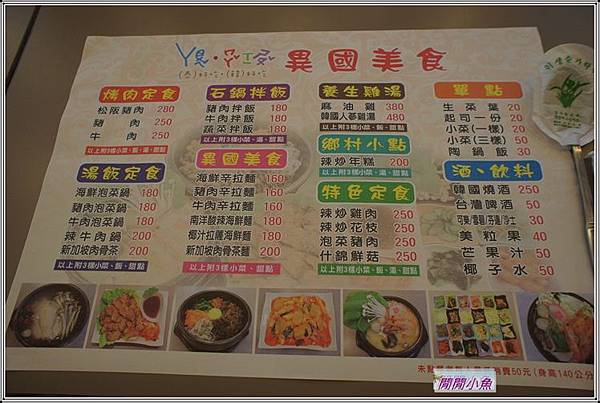 異國美食
烤肉定食
松阪豬肉 280
豬肉 250
牛肉 250
以上附3樣小菜、飯、湯、甜點
湯飯定食
海鮮泡菜鍋 180
豬肉泡菜鍋 180
牛肉泡菜鍋 180
辣牛肉鍋 200
新加坡肉骨茶 200
以上附3樣小菜、飯、甜點
石鍋拌飯
豬肉拌飯 180
牛肉拌飯 180
蔬菜拌飯 180
以上附3樣小菜、湯、甜點
異國美食
海鮮辛拉麵 160
豬肉辛拉麵 160
牛肉辛拉麵 160
南洋酸辣海鮮麵 180
椰汁拉薩海鮮麵 180
新加坡肉骨茶麵 200
以上附3樣小菜、甜點
養生雞湯
麻油雞 380
韓國人蔘雞湯 480
以上附3樣小菜、飯、甜點
鄉村小點
辣炒年糕 200
特色定食
辣炒雞肉 250
辣炒花枝 250
泡菜豬肉 250
什錦鮮菇 250
以上附3樣小菜、飯、湯、甜點
單點
生菜葉 20
起司一份 20
小菜(一樣) 20
小菜(三樣) 50
陶鍋飯 30
酒、飲料
韓國燒酒 250
台灣啤酒 50
美粒果 40
芒果汁 50
椰子水 50
費50元(身高140公分
閒閒小魚